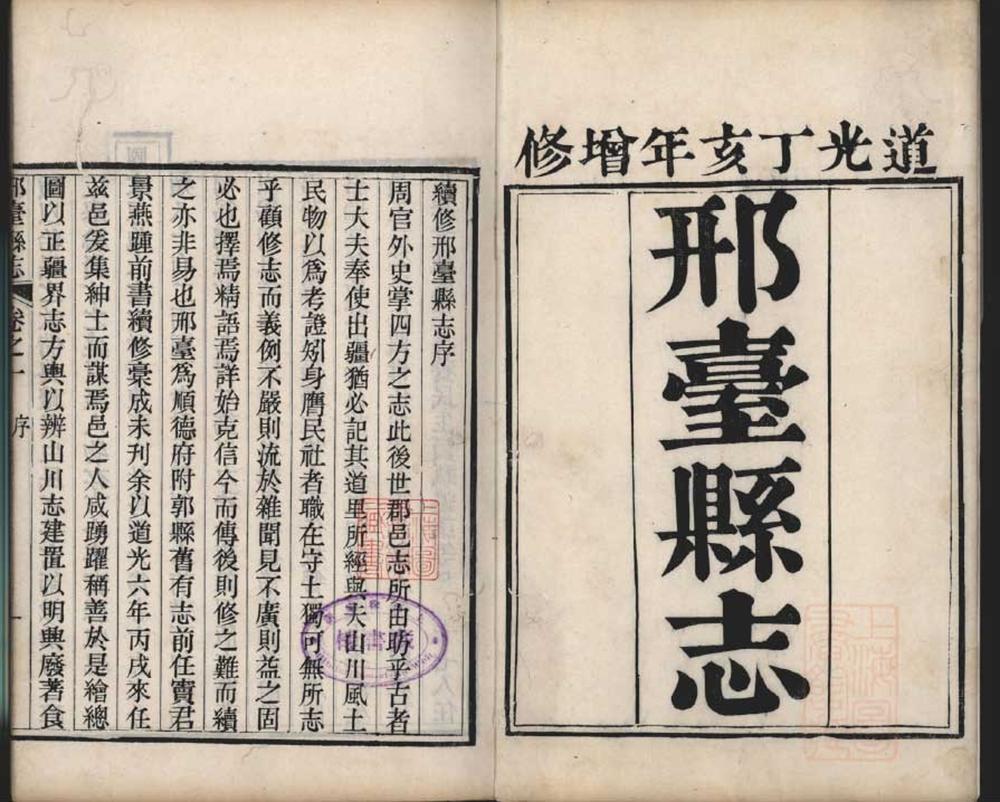 道光丁亥年增修
邢臺縣志
續修邢臺縣志序
周官外史掌四方之志此後世郡邑志所由昉乎古者
士大夫奉使出疆猶必記其道里所經與夫山川風土
民物以爲考證矧身膺民社者職在守土獨可無所志
乎顧修志而義例不嚴則流於雜聞見不廣則益之固
必也擇焉精語焉詳始克信今而傳後則修之難而續
之亦非易也邢臺爲順德府附郭縣舊有志前任竇君
景燕踵前書續修稾成未刋余以道光六年丙戌來任
兹邑爰集紳士而謀焉邑之人咸踴躍稱善於是繪總
圖以正疆界志方輿以辨山川志建置以明興廢著食
邢臺縣志 卷之一 序 一